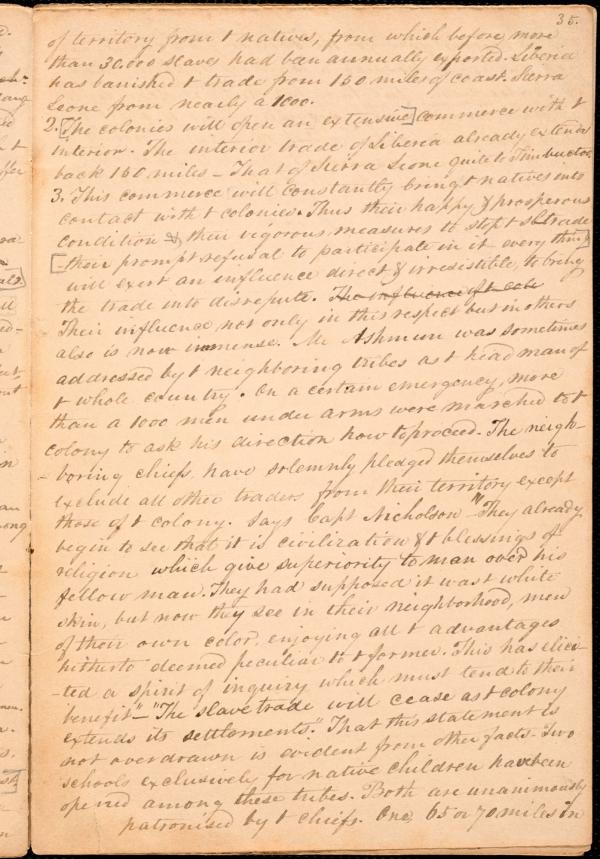 35.
of territory from t natives, from which before more
than 30.000 slaves had been annually exported. Liberia
has banished t trade from 150 miles of coast. Sierra
Leone from nearly a 1000.
2. [The colonies will open an extensive] commerce with t
interior. The interior trade of Liberia already extends
back 150 miles – That of Sierra Leone quite to Timbuctoo.
3. This commerce will constantly bring t natives into
contact with t colonies. Thus their happy & prosperous
condition & their vigorous measures to stop t sl trade
[– their prompt refusal to participate in it every thing
will exert an influence direct & irresistible, to bring
the trade into disrepute. The influence of t colo
Their influence not only in this respect but in others
also is now immense. Mr Ashmun was sometimes
addressed by t neighboring tribes as t head man of
t whole country. On a certain emergency, more
than a 1000 men under arms were marched to t
colony to ask his direction how to proceed. The neigh-
-boring chiefs have solemnly pledged themselves to
exclude all other traders from their territory except
those of t colony. Says Capt Nicholson "They already
begin to see that it is civilization & t blessings of
religion which give superiority to man over his
fellow man. They had supposed it was t white
skin, but now they see in their neighborhood, men
of their own color, enjoying all t advantages
hitherto deemed peculiar to t former. This has elici-
-ted a spirit of inquiry which must tend to their
benefit" – "The slave trade will cease as t colony
extends its settlements." That this statement is
not overdrawn is evident from other facts. Two
schools exclusively for native children have been
opened among these tribes. Both are unanimously
patronised by t chiefs. One, 65 or 70 miles in